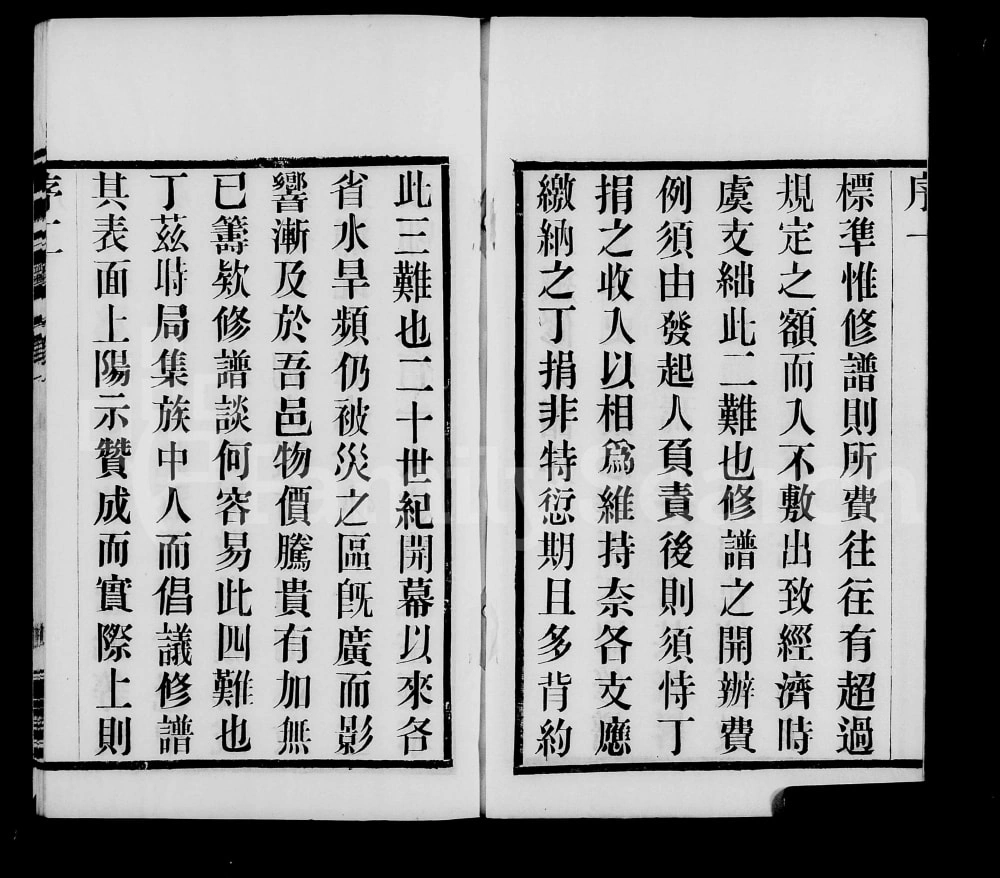 序一
標準惟修譜則所費往往有超過
規定之額而入不敷出致經濟時
虞支絀此二難也修譜之開辦費
例須由發起人負責後則須恃丁
捐之收入以相爲維持奈各支應
繳納之丁捐非特愆期且多背約
此三難也二十世紀開幕以來各
省水旱頻仍被災之區旣廣而影
響漸及於吾邑物價騰貴有加無
已籌欵修譜談何容易此四難也
丁茲時局集族中人而倡議修譜
其表面上陽示贊成而實際上則
序二
FamilySearch